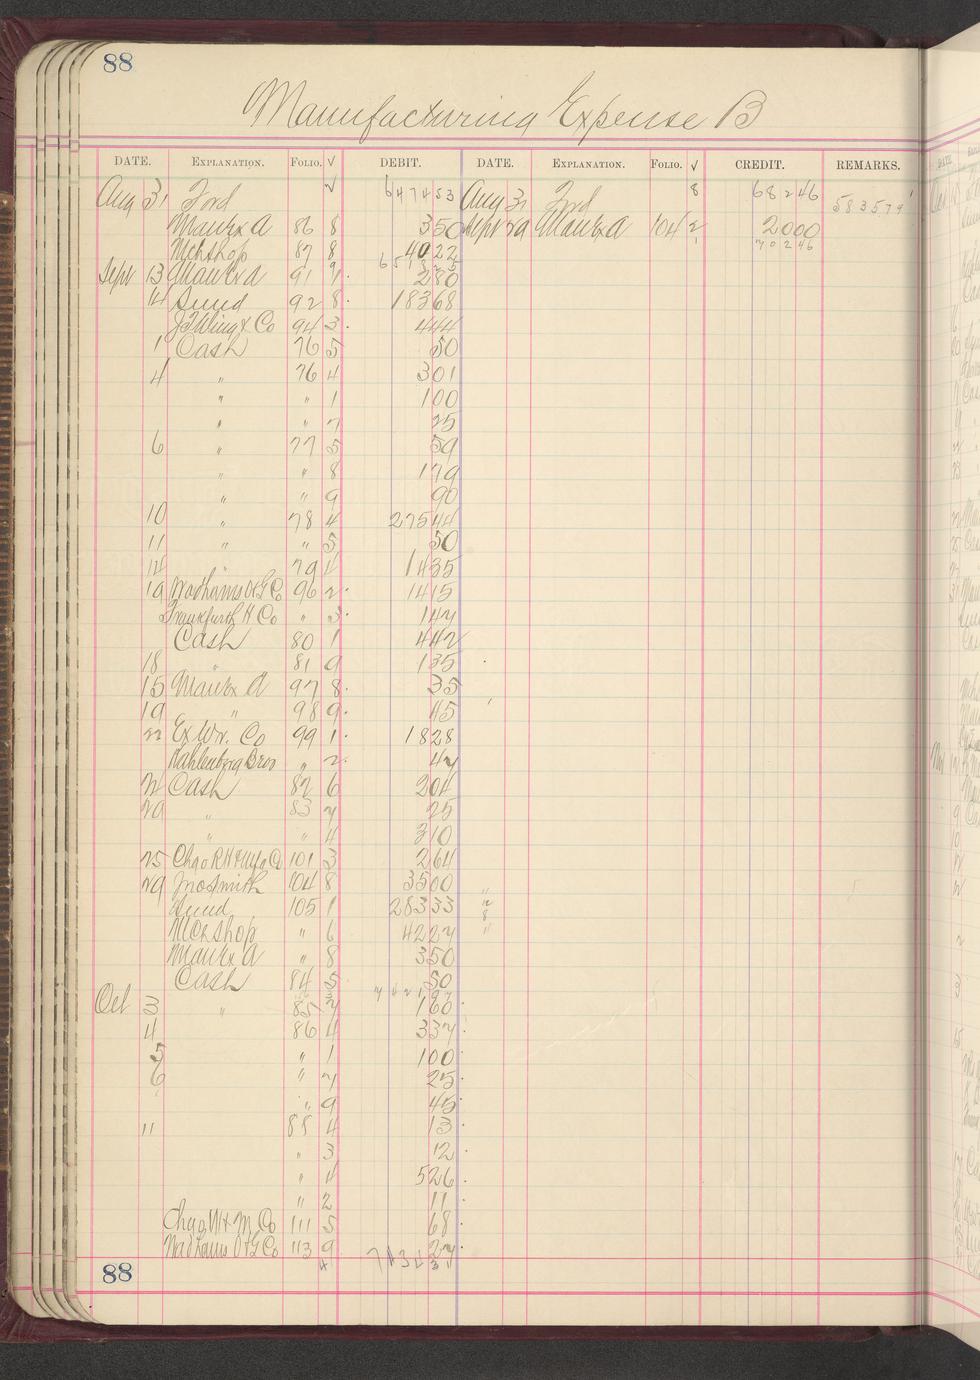 88
Manufacturing Expense B
DATE. EXPLANATION. FOLIO. √ DEBIT. DATE. EXPLANATION. FOLIO. √ CREDIT. REMARKS.
Aug 31 Ford √ 647453 Aug 31 Ford 8 68246 583579
86 8 350 Sept 29 104 2 2000
Mch Shop 87 8 4022 70246
Sept 13 91 9 280
14 Sund 92 8 18368
& Co 94 3 444
1 Cash 76 5 50
4 " 76 4 301
" " 1 100
" " 7 25
6 " 77 5 59
" " 8 179
" " 9 90
10 " 78 4 27544
11 " " 5 50
14 79 4 1435
19 Wadhams O & G Co 96 2 1415
Frankfurth H Co " 3 147
Cash 80 1 442
18 " 81 9 135
15 97 8 35
19 " 98 9 45
22 Ex Wr. Co 99 1 1828
Kahlenberg Bros " 2 47
Cash 82 6 204
29 " 83 7 25
" " 4 310
25 101 3 264
29 Jno Smith 104 8 3500
Sund 105 1 28333
Mch Shop " 6 4227
" 8 350
Cash 84 5 50
Oct 3 " 85 7 160
4 86 4 337
5 " 1 100
6 " 7 25
" 9 45
11 4 13
" 3 12
" 4 526
" 2 11
Co 111 5 68
Wadhams O & G Co 113 9 27
88